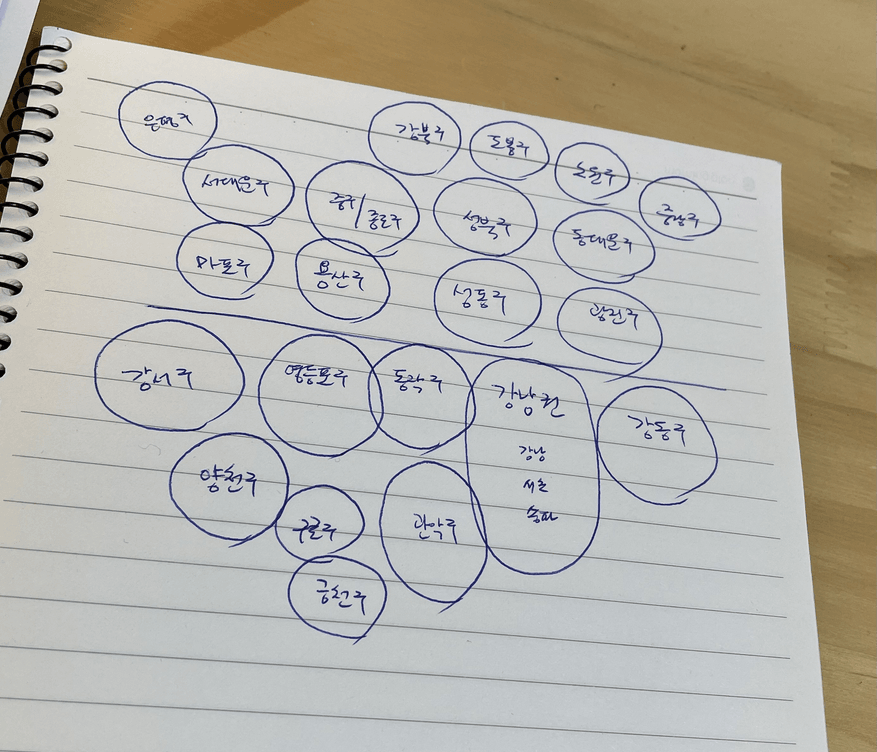 은평구
강북구
도봉구
노원구
서대문구
중구/
종로구
성북구
동대문구
중랑구
마포구
용산구
성동구
광진구
강서구
영등포구
동작구
강남권
강남
서초
송파
강동구
양천구
구로구
관악구
금천구